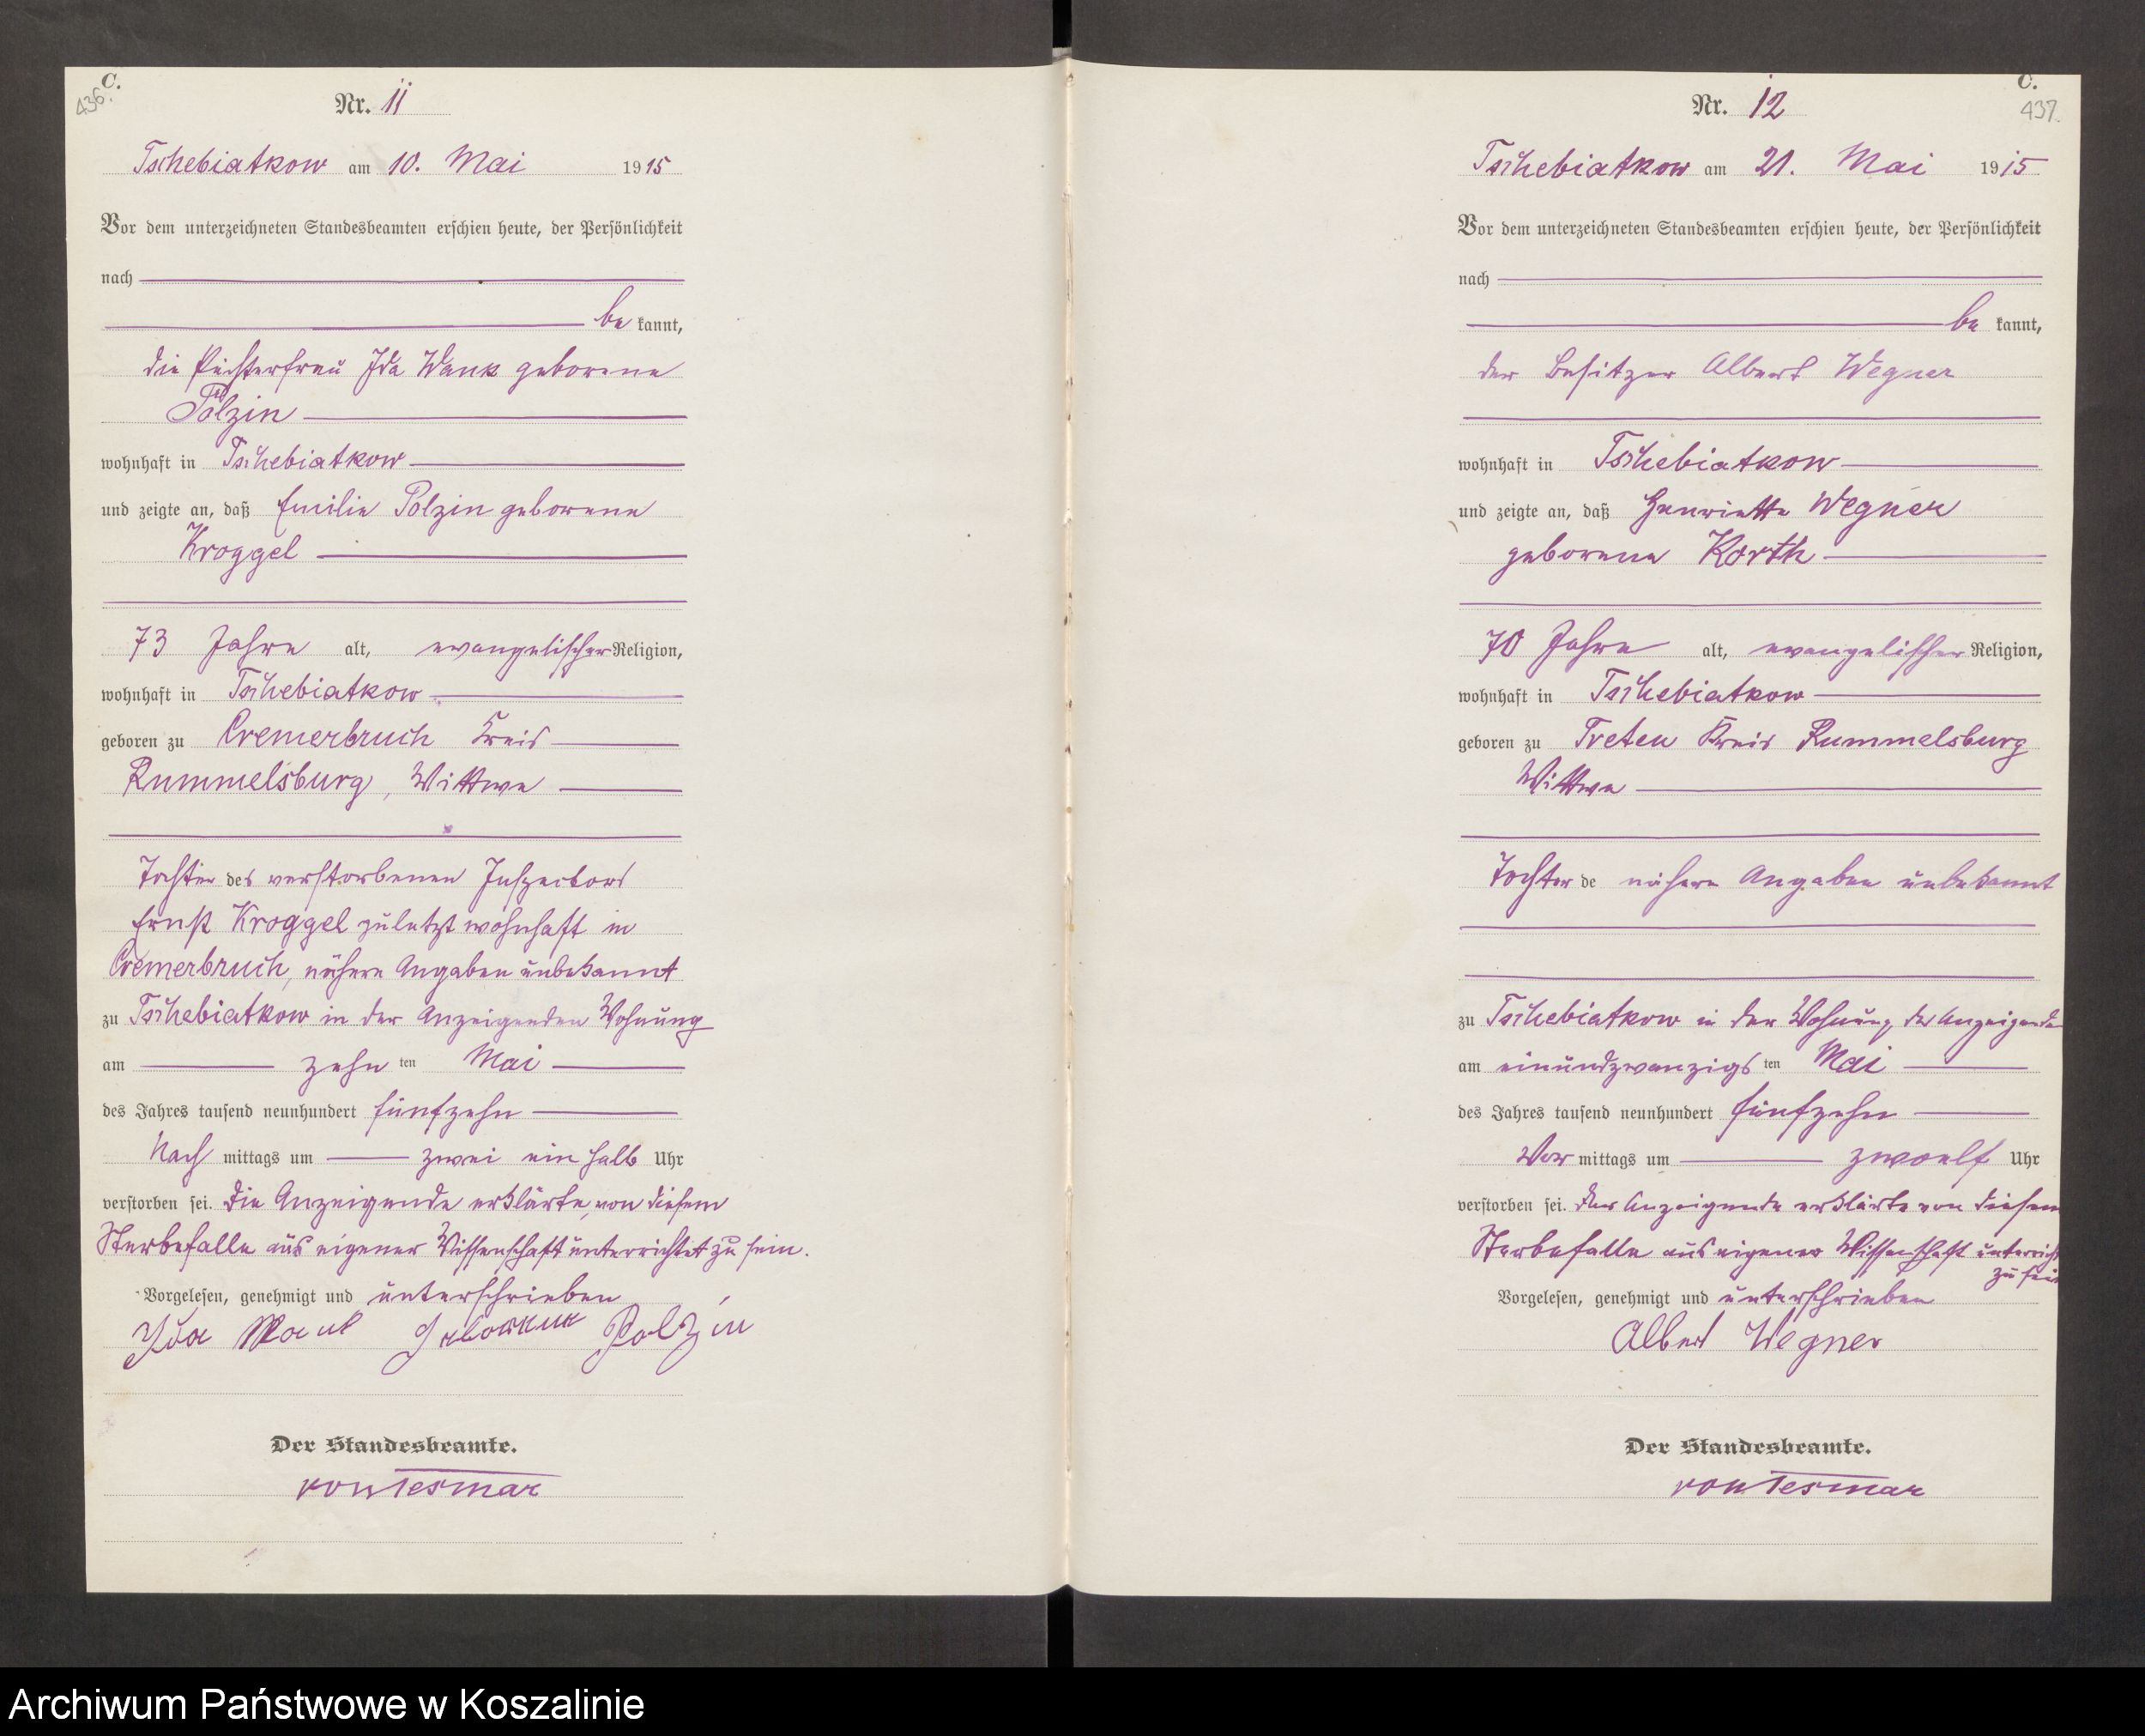 C.
436.
Nr. 11
Tschebiatkow am 10. Mai 1915
Vor dem unterzeichneten Standesbeamten erschien heute, der Persönlichkeit
nach
be kannt,
die Pächterfrau Ida Wank geborene
Polzin
wohnhaft in Tschebiatkow
und zeigte an, daß Emilie Polzin geborene
Kroggel
73 Jahre alt, evangelischer Religion,
wohnhaft in Tschebiatkow
geboren zu Cremerbruch Kreis
Rummelsburg, Wittwe
Tochter des verstorbenen Inspectors
Ernst Kroggel zuletzt wohnhaft in
Cremerbruch, nähere Angaben unbekannt
zu Tschebiatkow in der Anzeigenden Wohnung
am zehn ten Mai
des Jahres tausend neunhundert fünfzehn
Nach mittags um zwei ein halb Uhr
verstorben sei. Die Anzeigende erklärte, von diesem
Sterbefalle aus eigener Wissenschaft unterrichtet zu sein.
Vorgelesen, genehmigt und unterschrieben
Ida Wank geborene Polzin
Der Standesbeamte.
von Tesmar
C.
437.
Nr. 12
Tschebiatkow am 21. Mai 1915
Vor dem unterzeichneten Standesbeamten erschien heute, der Persönlichkeit
nach
be kannt,
der Besitzer Albert Wegner
wohnhaft in Tschebiatkow
und zeigte an, daß Henriette Wegner
geborene Korth
70 Jahre alt, evangelischer Religion,
wohnhaft in Tschebiatkow
geboren zu Treten Kreis Rummelsburg
Wittwe
Tochter de nähere Angaben unbekannt
zu Tschebiatkow in der Wohnung des Anzeigenden
am einundzwanzigs ten Mai
des Jahres tausend neunhundert fünfzehn
Vor mittags um zwoelf Uhr
verstorben sei. Der Anzeigende erklärte von diesem
Sterbefalle aus eigener Wissenschaft unterricht
zu sein
Vorgelesen, genehmigt und unterschrieben
Albert Wegner
Der Standesbeamte.
von Tesmar
Archiwum Państwowe w Koszalinie